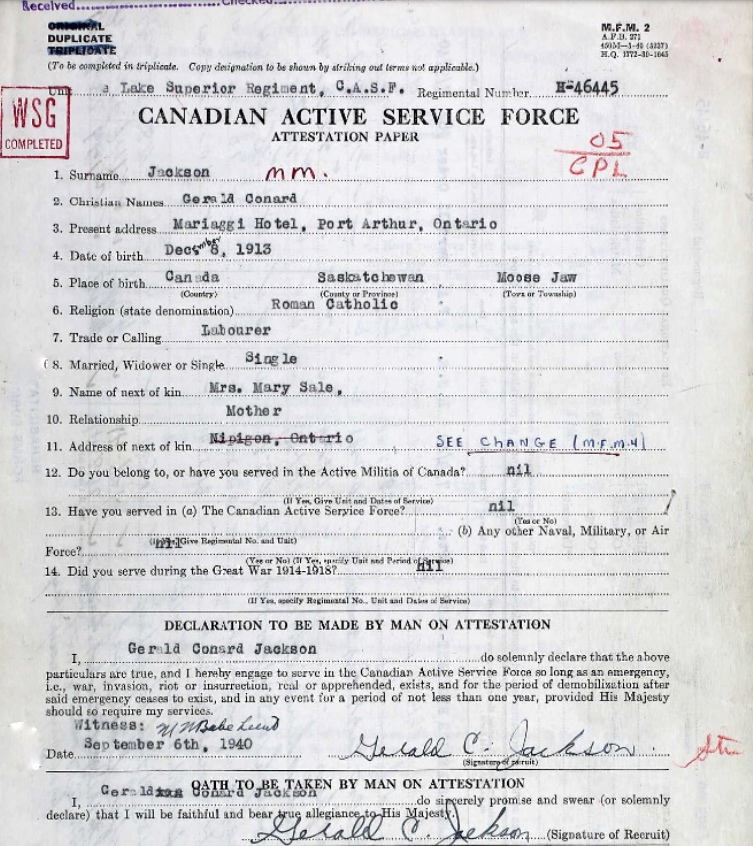 Received Checked
ORIGINAL
DUPLICATE
TRIPLICATE
M.F.M. 2
A.F.B. 271
H.Q. 1772-39-1645
(To be completed in triplicate. Copy designation to be shown by striking out terms not applicable.)
Unit Lake Superior Regiment, C.A.S.F. Regimental Number H-46445
WSG
COMPLETED
CANADIAN ACTIVE SERVICE FORCE
ATTESTATION PAPER
05
CPL
1. Surname Jackson MM.
2. Christian Names Gerald Conard
3. Present address Mariaggi Hotel, Port Arthur, Ontario
4. Date of birth December 8, 1913
5. Place of birth Canada Saskatchewan Moose Jaw
(Country) (County or Province) (Town or Township)
6. Religion (state denomination) Roman Catholic
7. Trade or Calling Labourer
8. Married, Widower or Single Single
9. Name of next of kin Mrs. Mary Sale,
10. Relationship Mother
11. Address of next of kin Nipigon, Ontario SEE CHANGE (M.F.M.4)
12. Do you belong to, or have you served in the Active Militia of Canada? nil
(If Yes, Give Unit and Dates of Service)
13. Have you served in (a) The Canadian Active Service Force? nil
(Yes or No)
(If Yes, Give Regimental No. and Unit) (b) Any other Naval, Military, or Air
Force? nil
(Yes or No) (If Yes, specify Unit and Period of Service)
14. Did you serve during the Great War 1914-1918? nil
(If Yes, specify Regimental No., Unit and Dates of Service)
DECLARATION TO BE MADE BY MAN ON ATTESTATION
I, Gerald Conard Jackson do solemnly declare that the above
particulars are true, and I hereby engage to serve in the Canadian Active Service Force so long as an emergency,
i.e., war, invasion, riot or insurrection, real or apprehended, exists, and for the period of demobilization after
said emergency ceases to exist, and in any event for a period of not less than one year, provided His Majesty
should so require my services.
Witness:
Date September 6th, 1940 Gerald C. Jackson
(Signature of recruit)
OATH TO BE TAKEN BY MAN ON ATTESTATION
I, Gerald Conard Jackson do sincerely promise and swear (or solemnly
declare) that I will be faithful and bear true allegiance to His Majesty.
Gerald C. Jackson (Signature of Recruit)